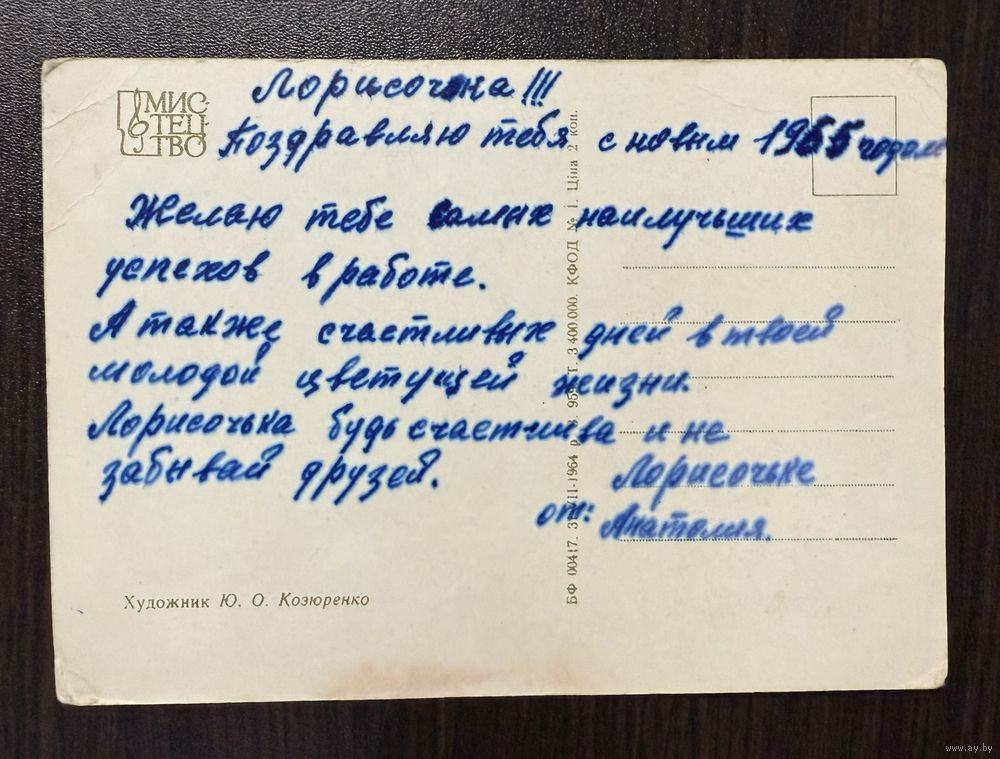 МИС-
ТЕЦ-
ТВО
Лорисочка!!!
Поздравляю тебя с новым 1965 годом
Желаю тебе самых наилучьших
успехов в работе.
А также счастливых дней в твоей
молодой цветущей жизни.
Лорисочька будь счастлива и не
забывай друзей.
Лорисочьке
от: Анатолия.
Художник Ю. О. Козюренко
БФ 00417. 1964 Т. 3 400 000. КФОД № 1. Ціна 2 коп.
www.ay.by